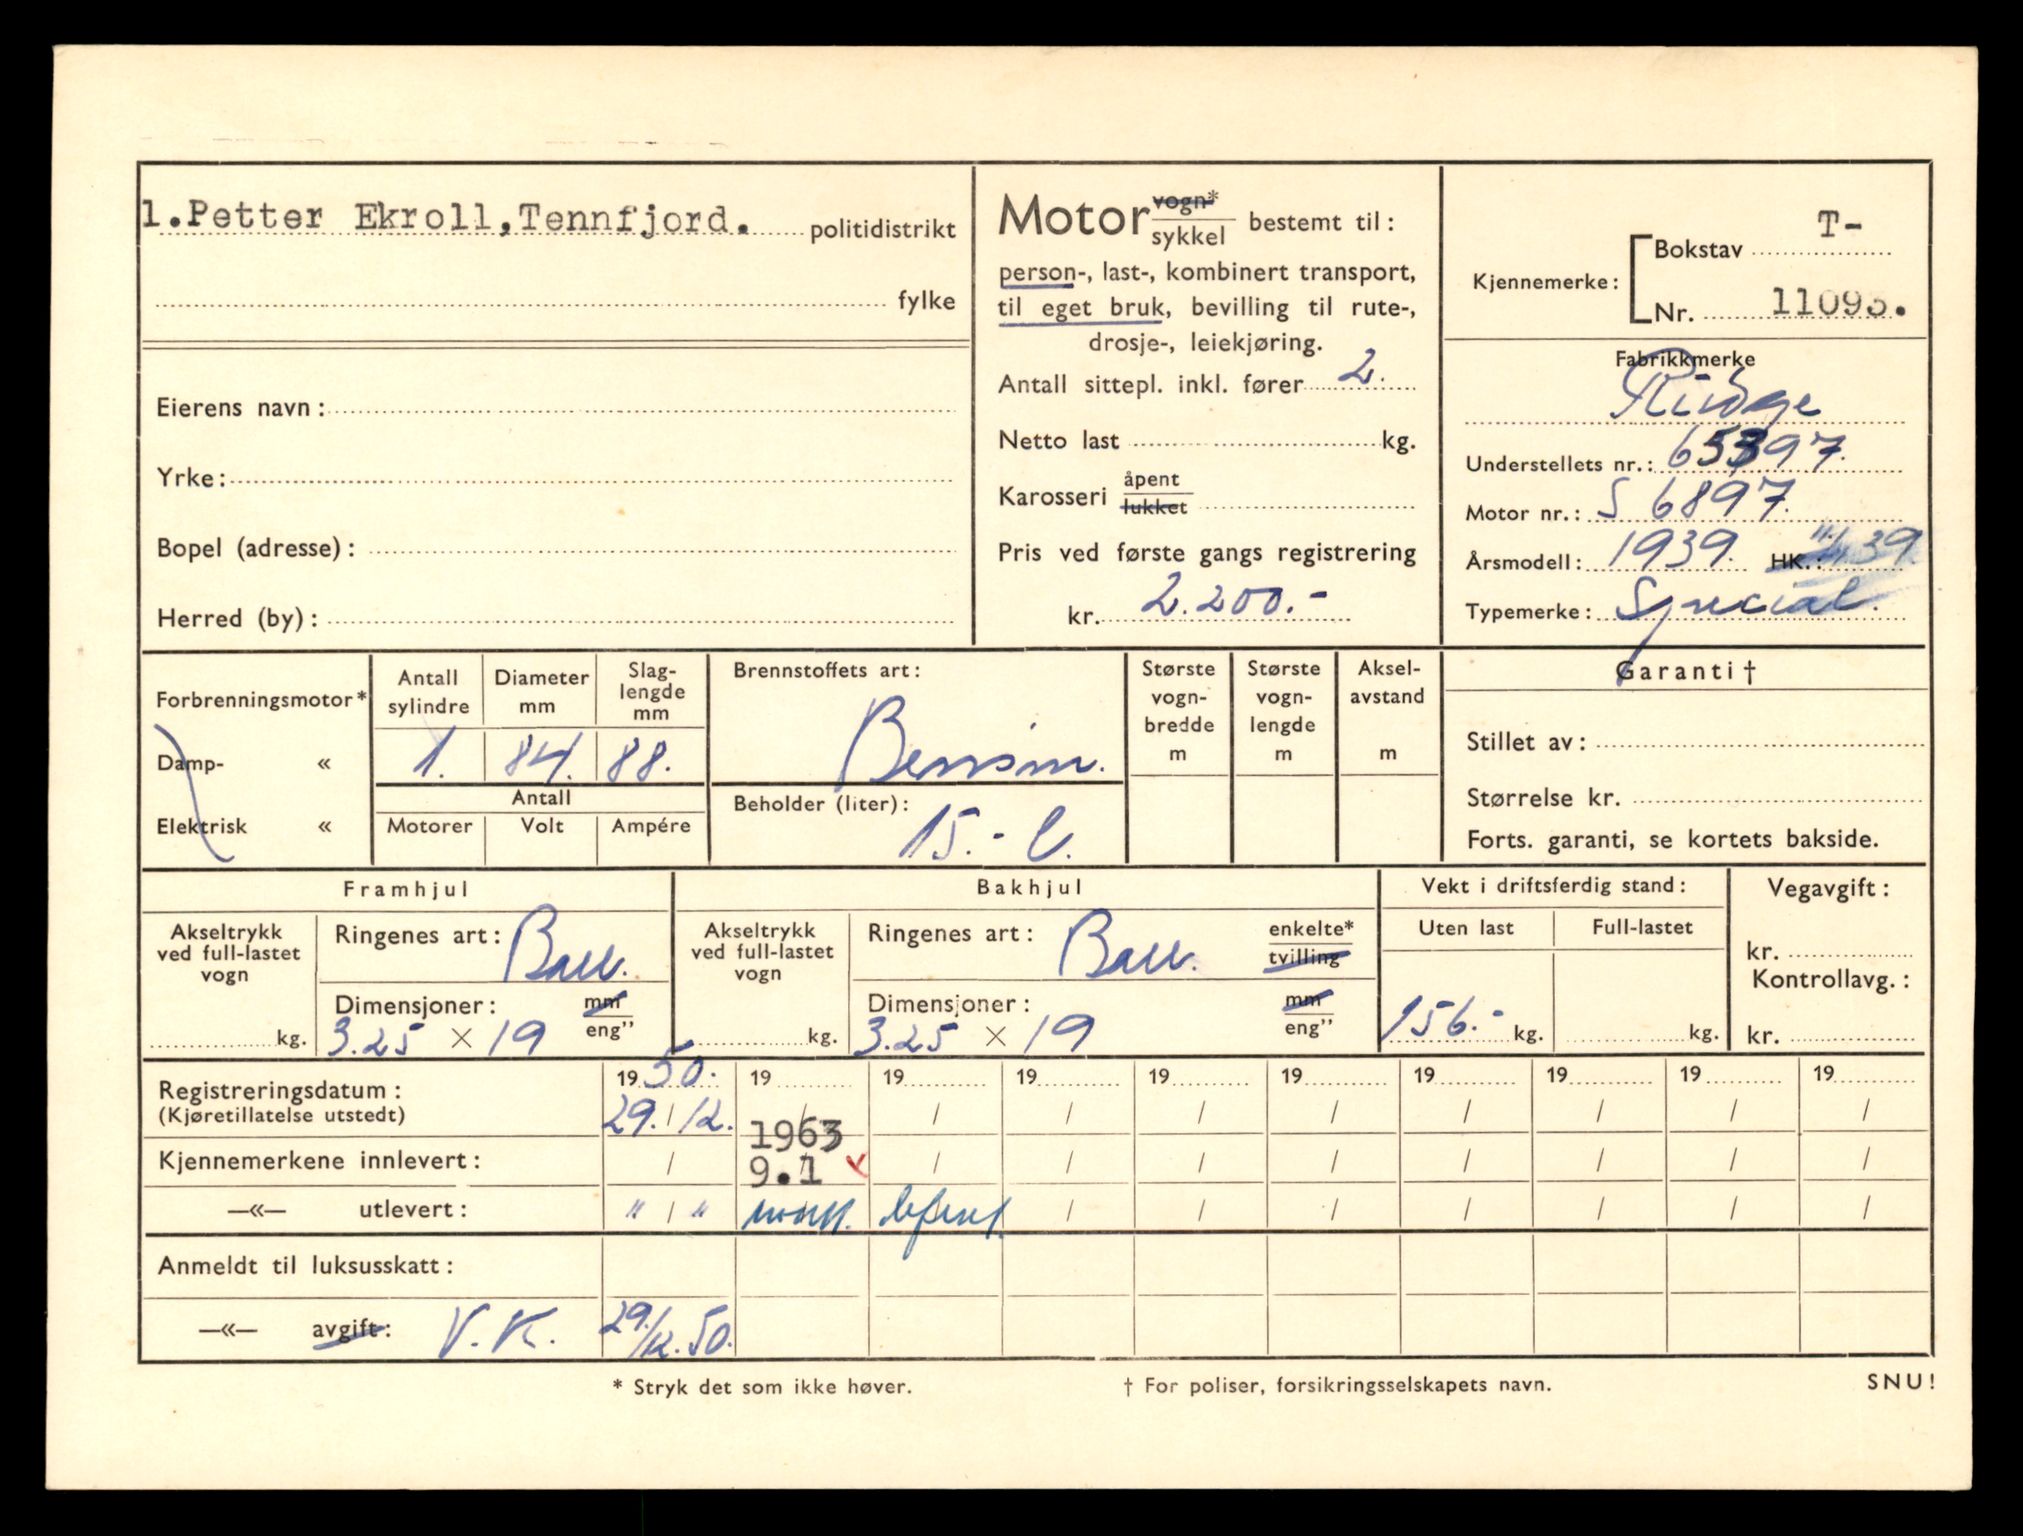 1. Petter Ekroll, Tennfjord. politidistrikt
fylke
Eierens navn:
Yrke:
Bopel (adresse):
Herred (by):
Motor vogn* sykkel bestemt til:
person-, last-, kombinert transport,
til eget bruk, bevilling til rute-,
drosje-, leiekjøring.
Antall sittepl. inkl. fører 2.
Netto last kg.
Karosseri åpent lukket
Pris ved første gangs registrering
kr. 2.200.-
Kjennemerke: Bokstav T-
Nr. 11093.
Fabrikkmerke
Rudge
Understellets nr.: 65397.
Motor nr.: S 6897.
Årsmodell: 1939. HK.: 39
Typemerke: Special.
Forbrenningsmotor*
Damp- «
Elektrisk «
Antall sylindre
Diameter mm
Slag-lengde mm
1. 84. 88.
Antall
Motorer Volt Ampére
Brennstoffets art:
Bensin.
Beholder (liter):
15.- l.
Største vogn-bredde m
Største vogn-lengde m
Aksel-avstand m
Garanti †
Stillet av:
Størrelse kr.
Forts. garanti, se kortets bakside.
Framhjul
Akseltrykk ved full-lastet vogn
kg.
Ringenes art: Ball.
Dimensjoner: mm eng”
3.25 × 19
Bakhjul
Akseltrykk ved full-lastet vogn
kg.
Ringenes art: Ball. enkelte* tvilling
Dimensjoner: mm eng”
3.25 × 19
Vekt i driftsferdig stand:
Uten last Full-lastet
156.- kg. kg.
Vegavgift:
kr.
Kontrollavg.:
kr.
Registreringsdatum: 1950. 19 19 19 19 19 19 19 19 19
(Kjøretillatelse utstedt) 29. / 12. / / / / / / / / /
1963
Kjennemerkene innlevert: / 9.1 / / / / / / / /
—«— utlevert: " / " / / / / / / /
Anmeldt til luksusskatt:
—«— avgift: V.K. 29./12.50.
* Stryk det som ikke høver.
† For poliser, forsikringsselskapets navn.
SNU!